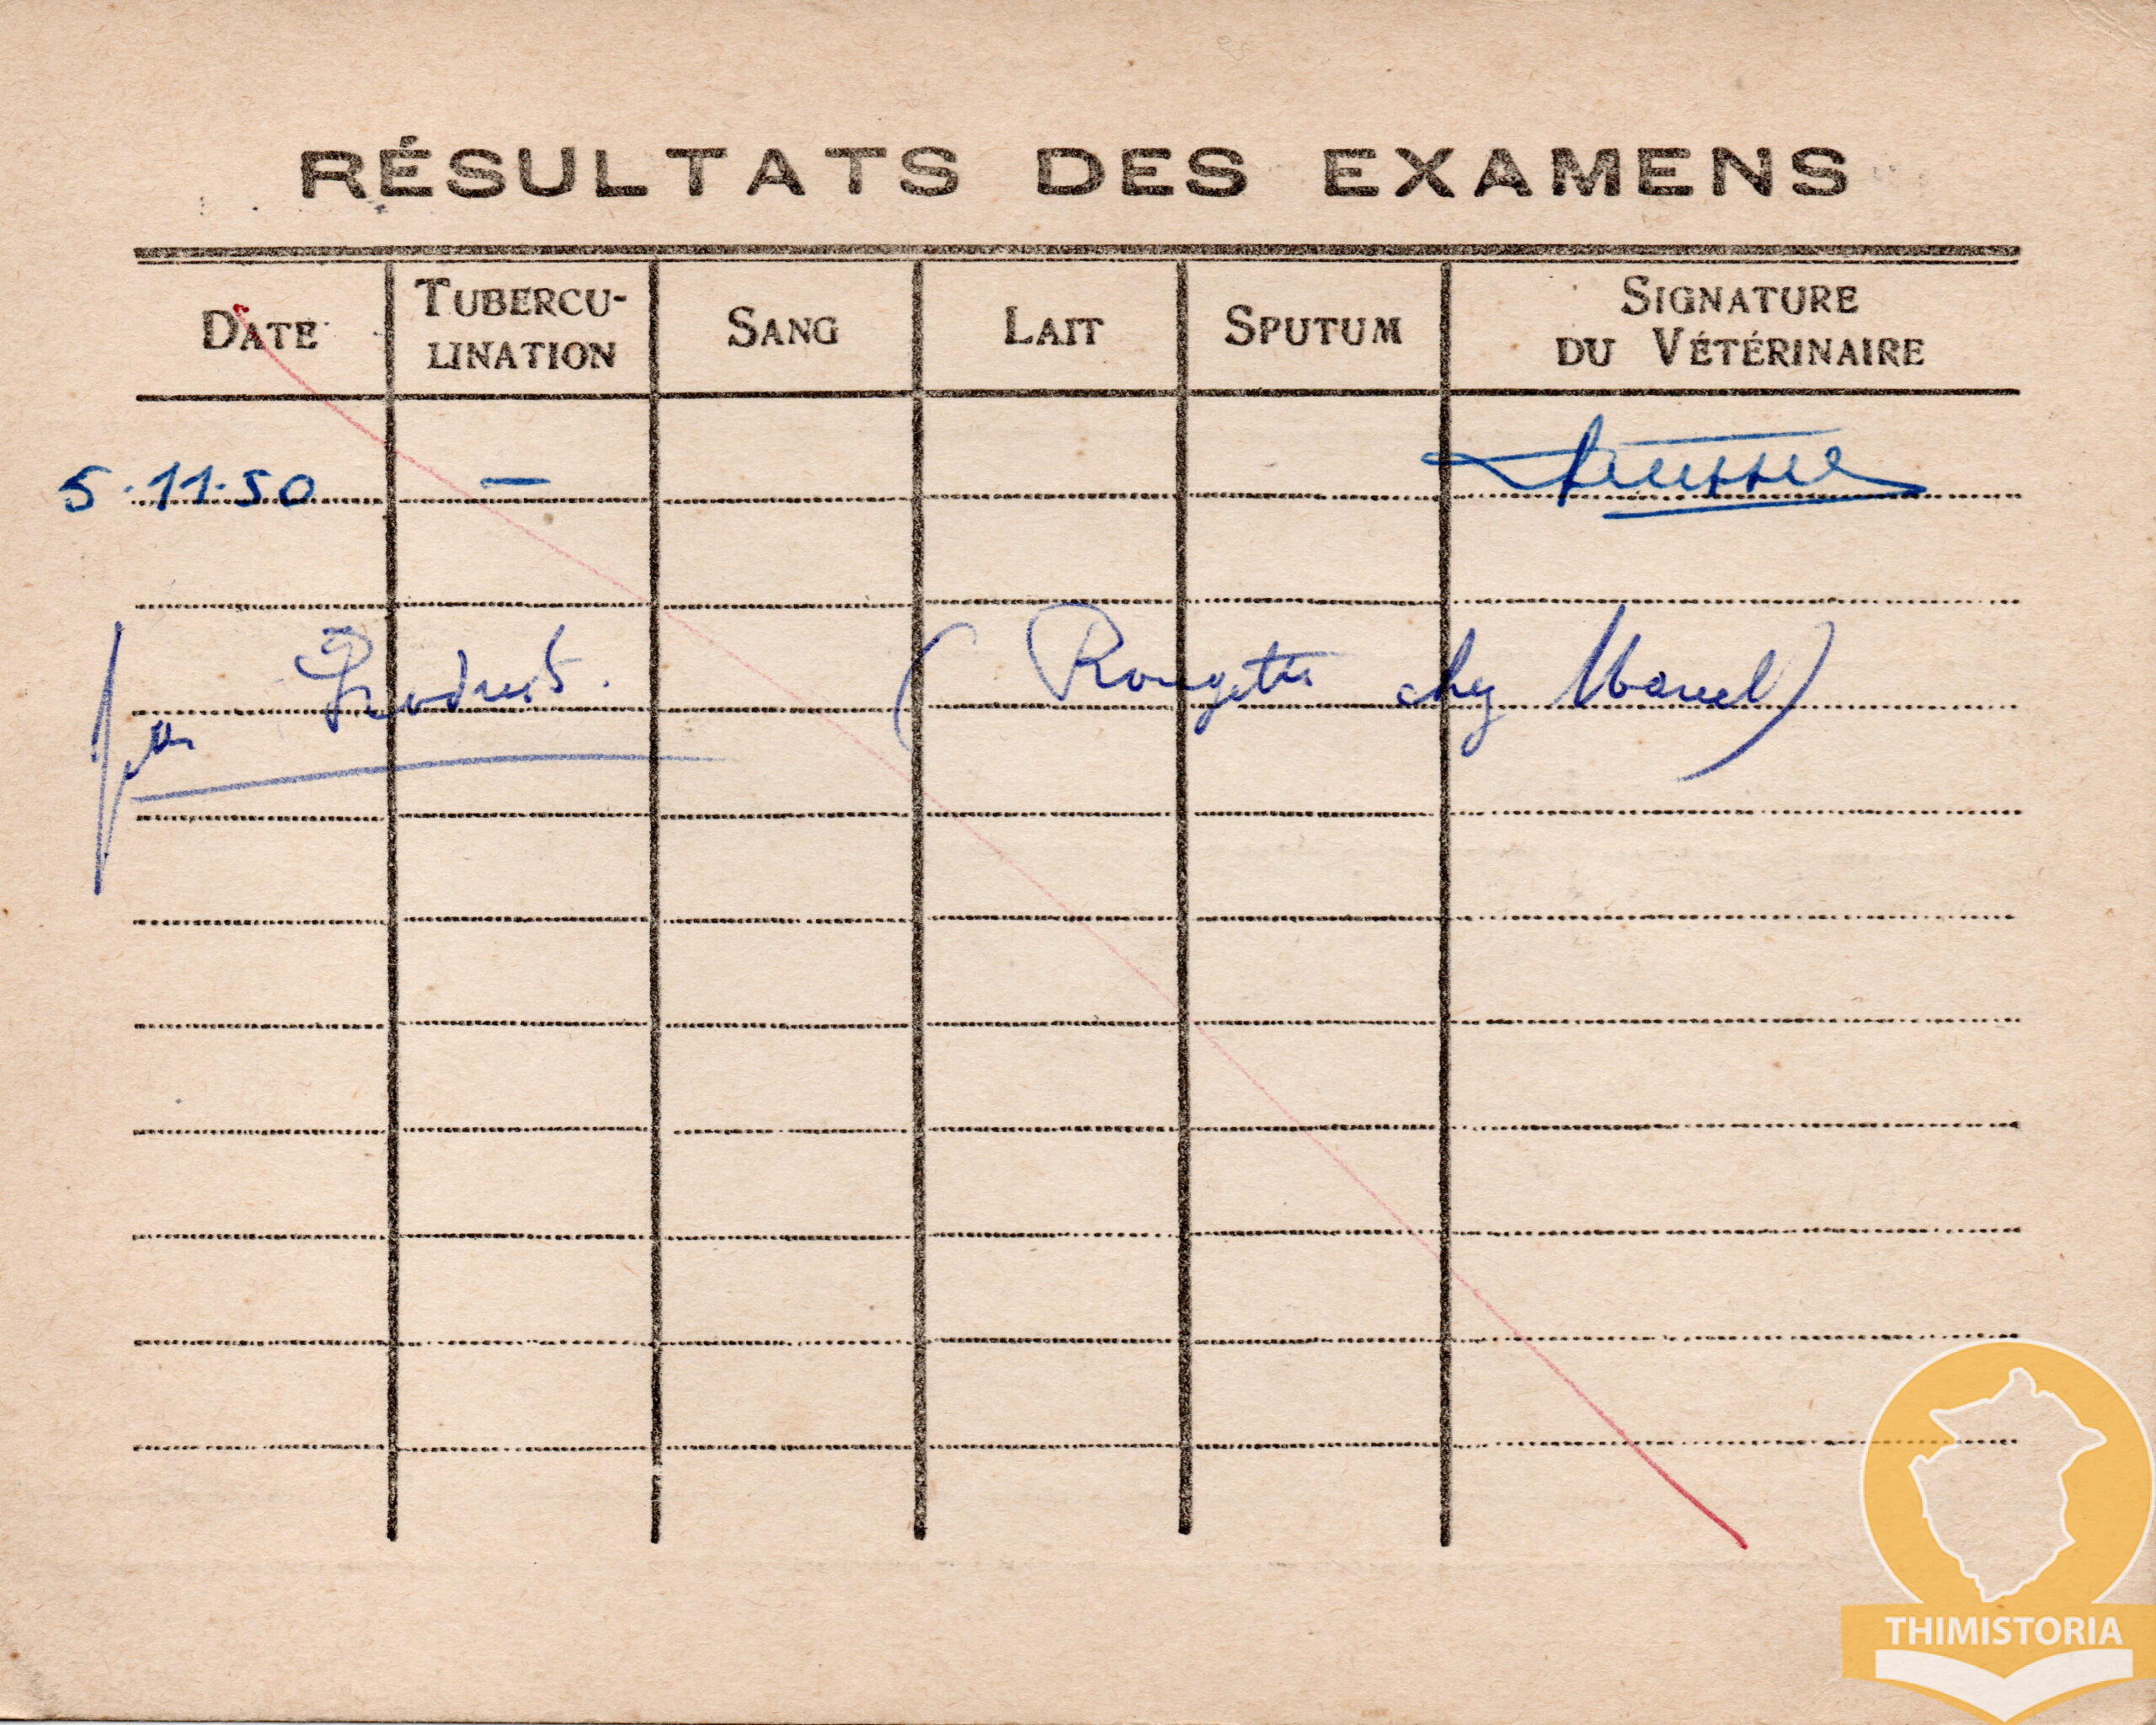 RÉSULTATS DES EXAMENS
DATE TUBERCU-LINATION SANG LAIT SPUTUM SIGNATURE DU VÉTÉRINAIRE
5.11.50 —
Produit. (Rougette chez Marcel)
THIMISTORIA